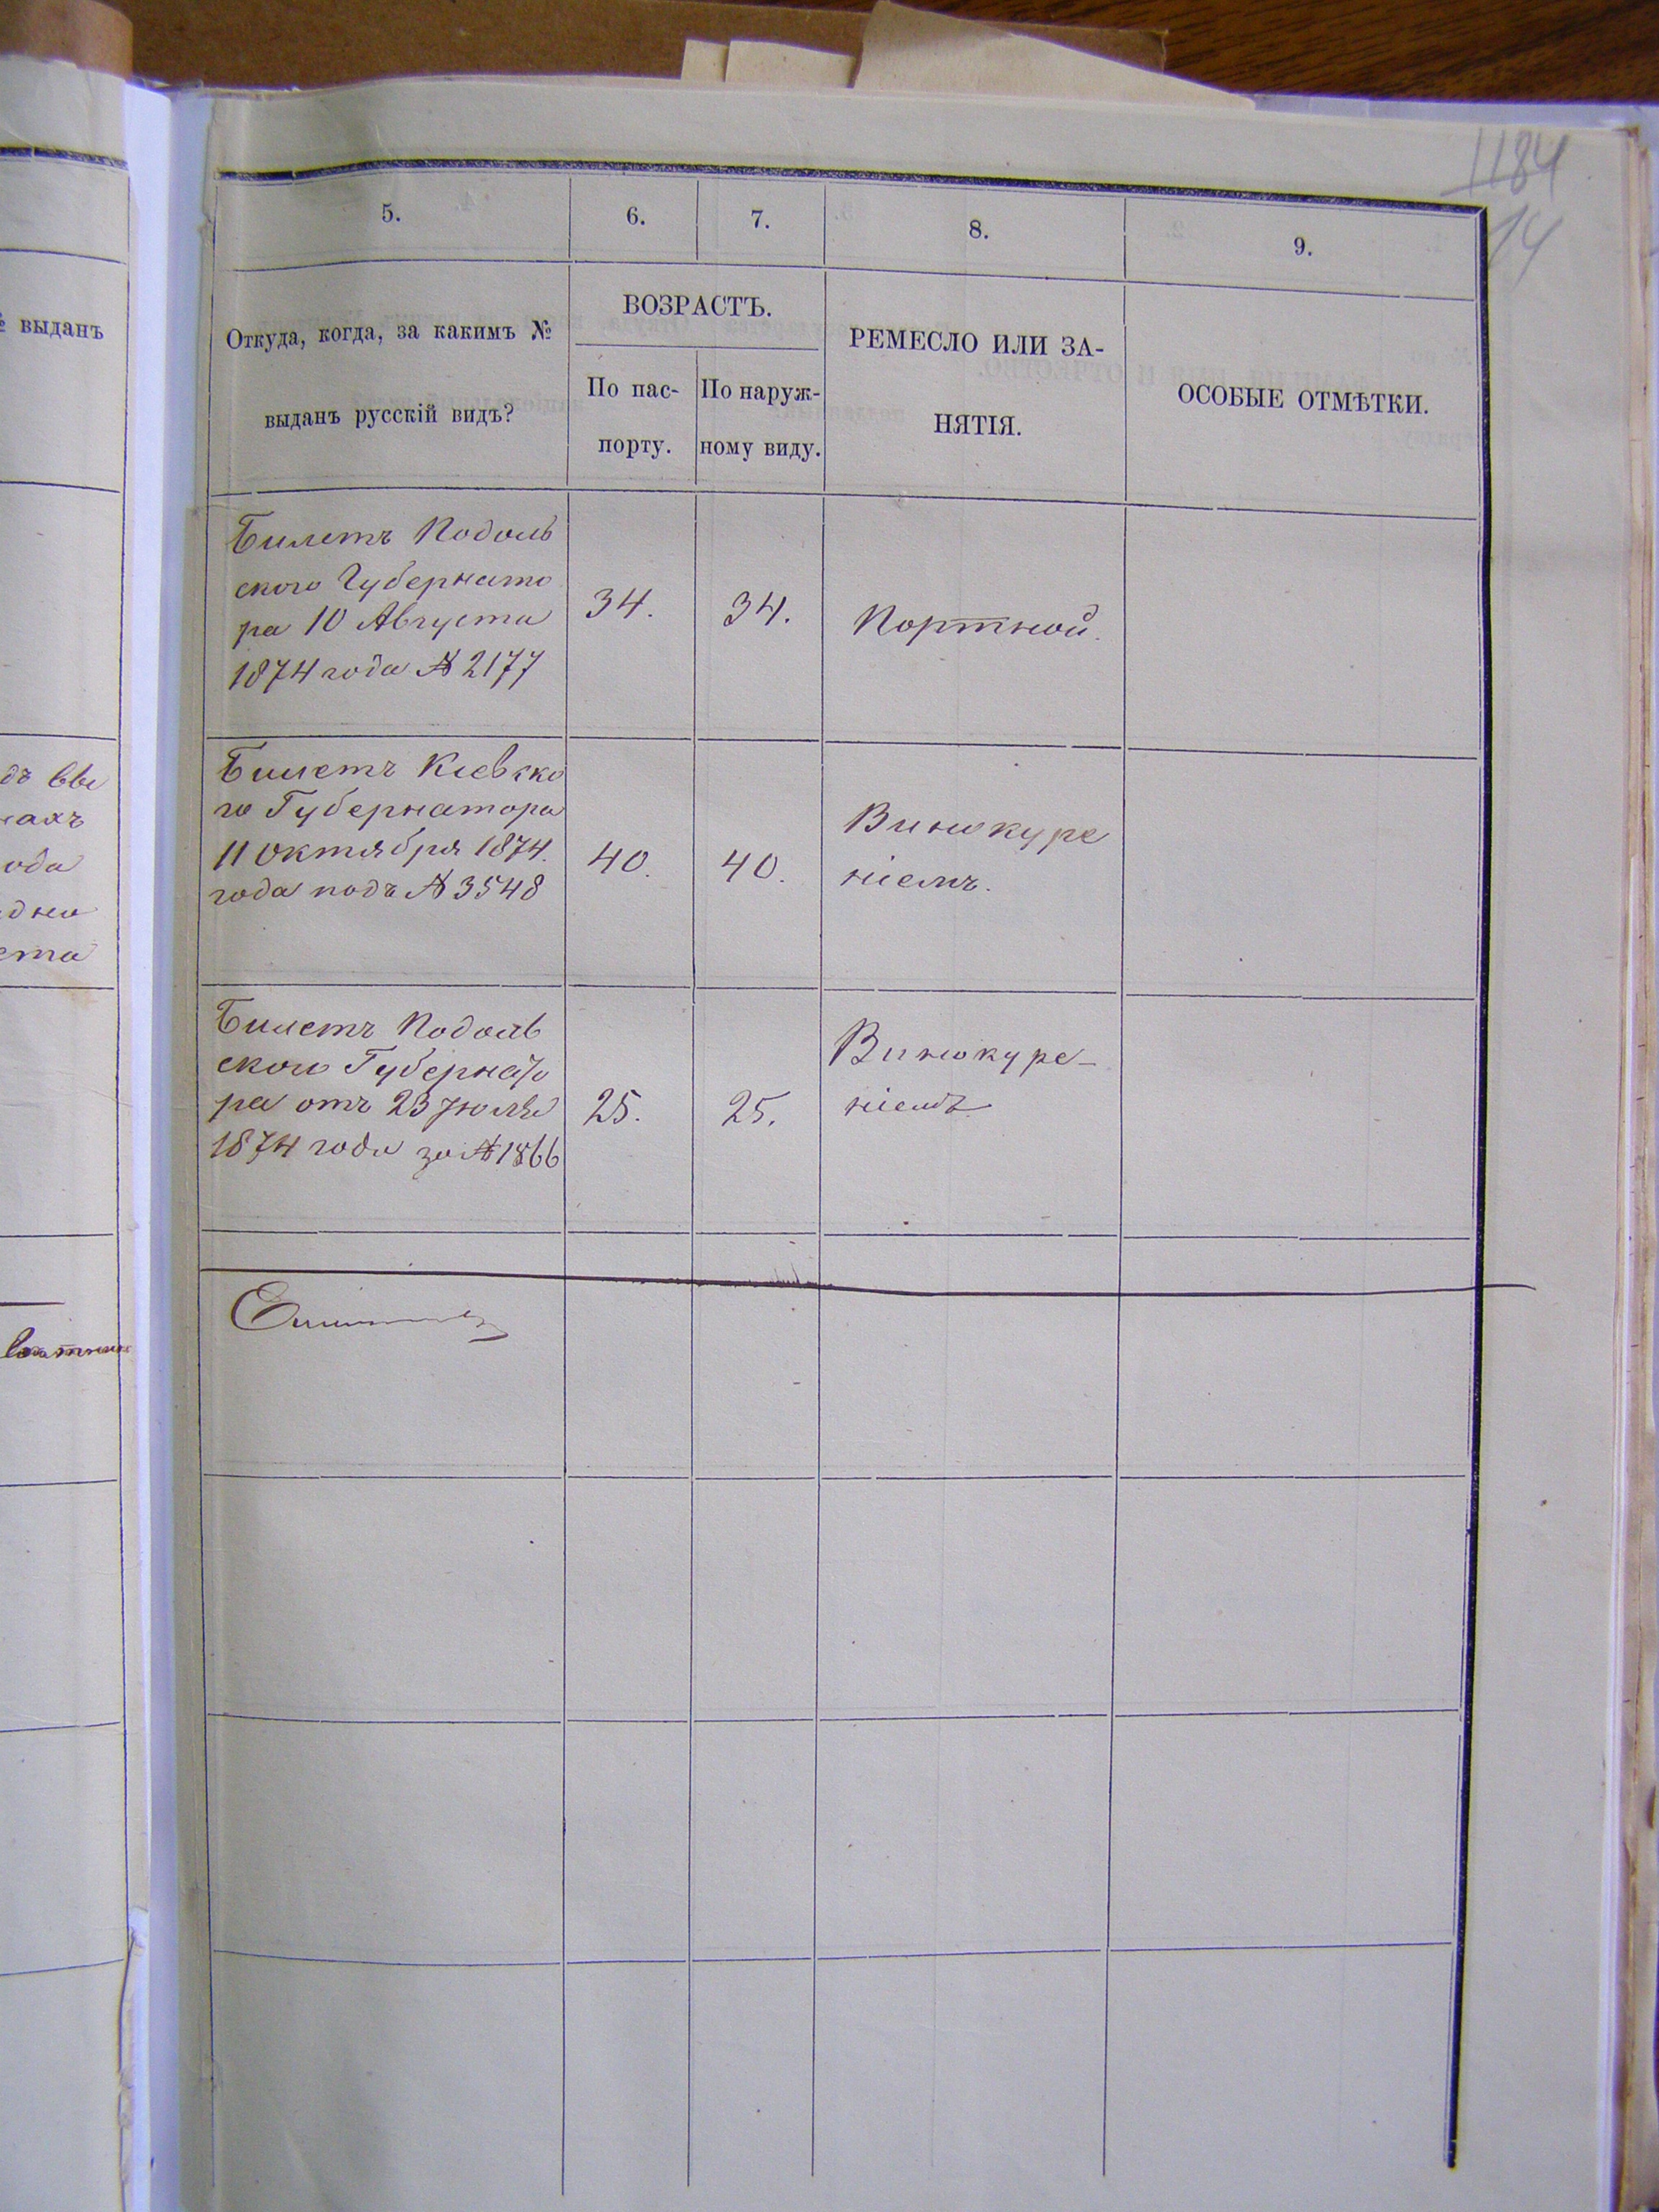 1184
14
№ выданъ
дъ вы
нахъ
ода
дна
ста
5.
6.
7.
8.
9.
Откуда, когда, за какимъ №
выданъ русскій видъ?
ВОЗРАСТЪ.
По пас-
порту.
По наруж-
ному виду.
РЕМЕСЛО ИЛИ ЗА-
НЯТІЯ.
ОСОБЫЕ ОТМѢТКИ.
Билетъ Подоль
ского Губернато
ра 10 Августа
1874 года № 2177
34.
34.
Портной.
Билетъ Кіевско
го Губернатора
11 Октября 1874.
года подъ № 3548
40.
40.
Винокуре
ніемъ.
Билетъ Подоль
ского Губернато
ра отъ 23 Іюля
1874 года за № 1866
25.
25.
Винокуре-
ніемъ